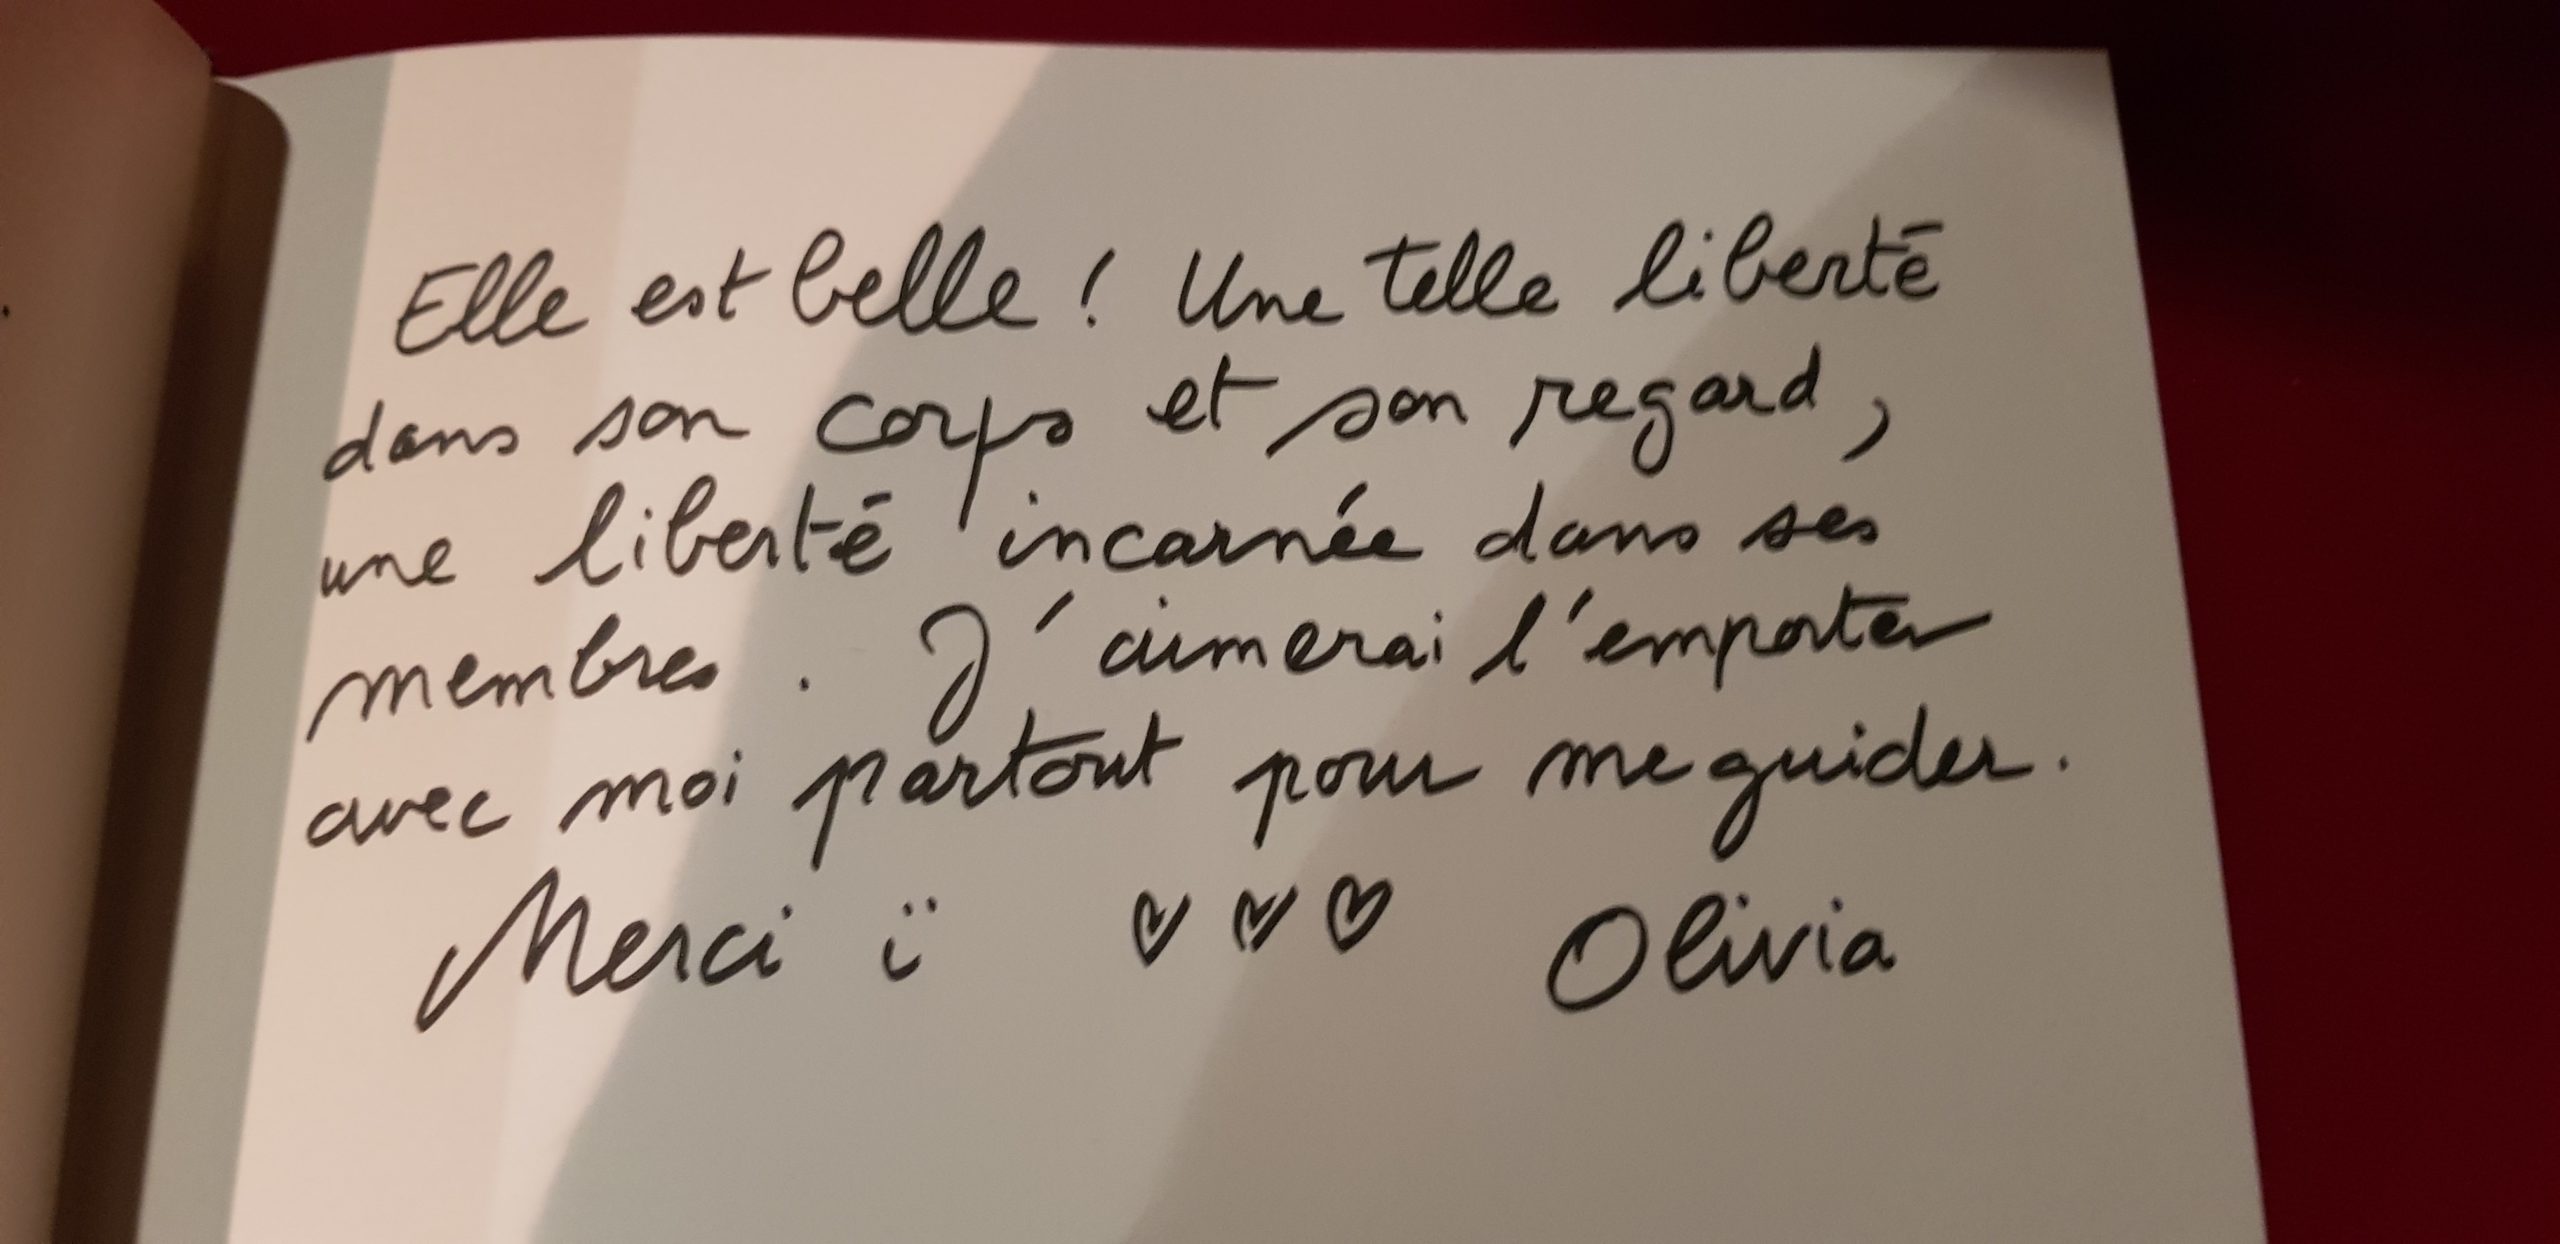 Elle est belle ! Une telle liberté
dans son corps et son regard,
une liberté incarnée dans ses
membres. J'aimerai l'emporter
avec moi partout pour me guider.
Merci ï ♡ ♡ ♡ Olivia